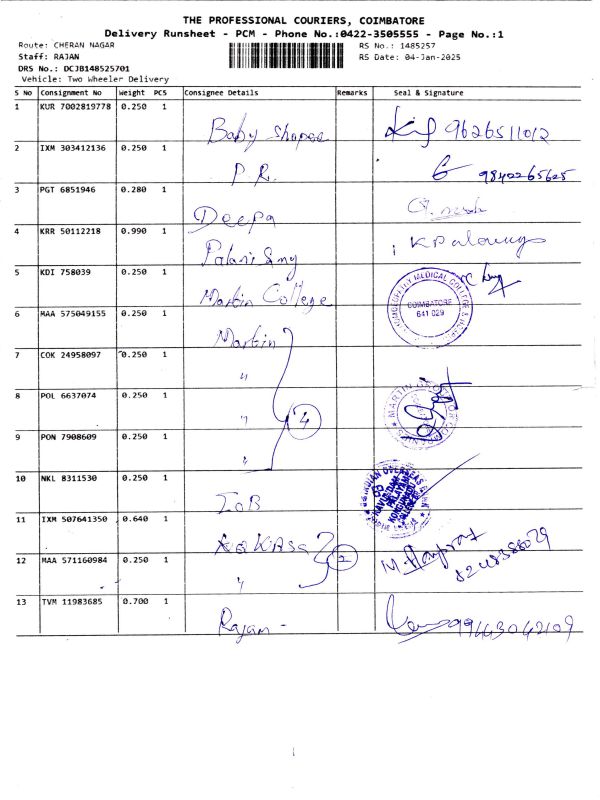 THE PROFESSIONAL COURIERS, COIMBATORE
Delivery Runsheet - PCM - Phone No.:0422-3505555 - Page No.:1
Route: CHERAN NAGAR RS No.: 1485257
Staff: RAJAN RS Date: 04-Jan-2025
DRS No.: DCJB148525701
Vehicle: Two Wheeler Delivery
S No Consignment No Weight PCS Consignee Details Remarks Seal & Signature
1 KUR 7002819778 0.250 1
Baby Shapee 9626511012
2 IXM 303412136 0.250 1
P.R. 9840265625
3 PGT 6851946 0.280 1
Deepa
4 KRR 50112218 0.990 1
Palani Samy
5 KDI 758039 0.250 1
Martin College
HOMOEOPATHY MEDICAL COLLEGE &
COIMBATORE
641 029
6 MAA 575049155 0.250 1
Martin
7 COK 24958097 0.250 1
"
8 POL 6637074 0.250 1
" 4
MARTIN
9 PON 7908609 0.250 1
"
10 NKL 8311530 0.250 1
IOB
INDIAN OVERSEAS BANK
11 IXM 507641350 0.640 1
2
12 MAA 571160984 0.250 1
"
13 TVM 11983685 0.700 1
Rajan - 99443042109